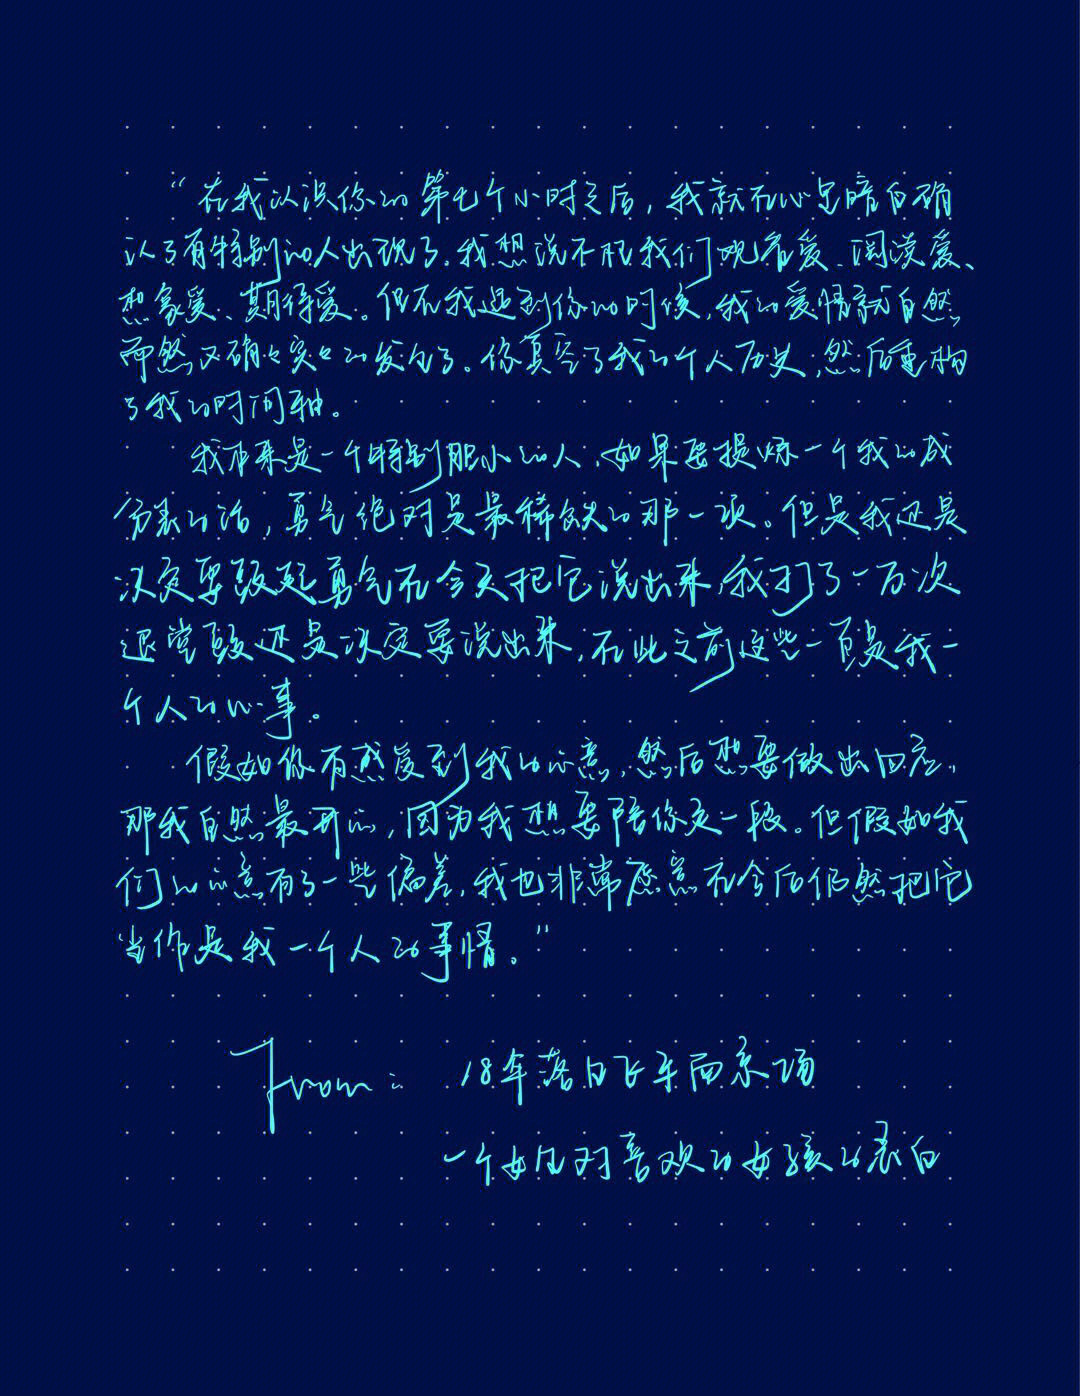 “在我认识你的第七个小时之后，我就在心里暗自确
认了有特别的人出现了。我想说不枉我们观看爱、阅读爱、
想象爱、期待爱。但在我遇到你的时候，我的爱情就自然
而然又确确实实的发生了。你真空了我的个人历史，然后重构
了我的时间轴。
我本来是一个特别胆小的人，如果要提炼一个我的成
分表的话，勇气绝对是最稀缺的那一项。但是我还是
决定要鼓起勇气在今天把它说出来，我打了一万次
退堂鼓还是决定要说出来，在此之前这些一直是我一
个人的心事。
假如你有感受到我的心意，然后想要做出回应，
那我自然最开心，因为我想要陪你走一段。但假如我
们的心意有了一些偏差，我也非常愿意在今后仍然把它
当作是我一个人的事情。”
From: 18年落日飞车南京场
一个女生对喜欢的女孩的表白